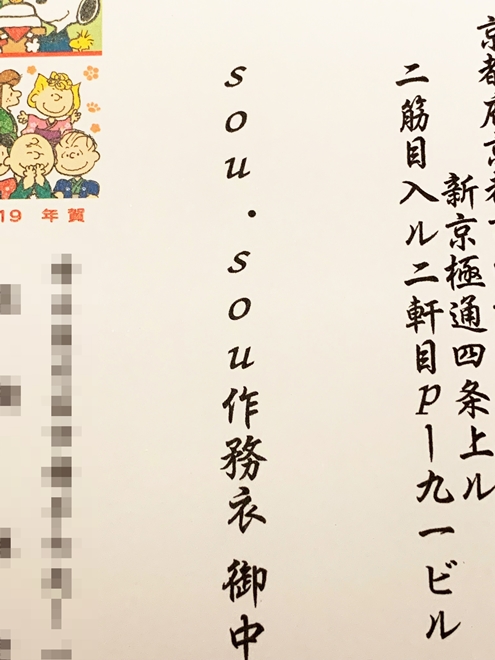 京都府京都
新京極通四条上ル
二筋目入ル二軒目Pー九一ビル
sou・sou作務衣 御中
19 年賀